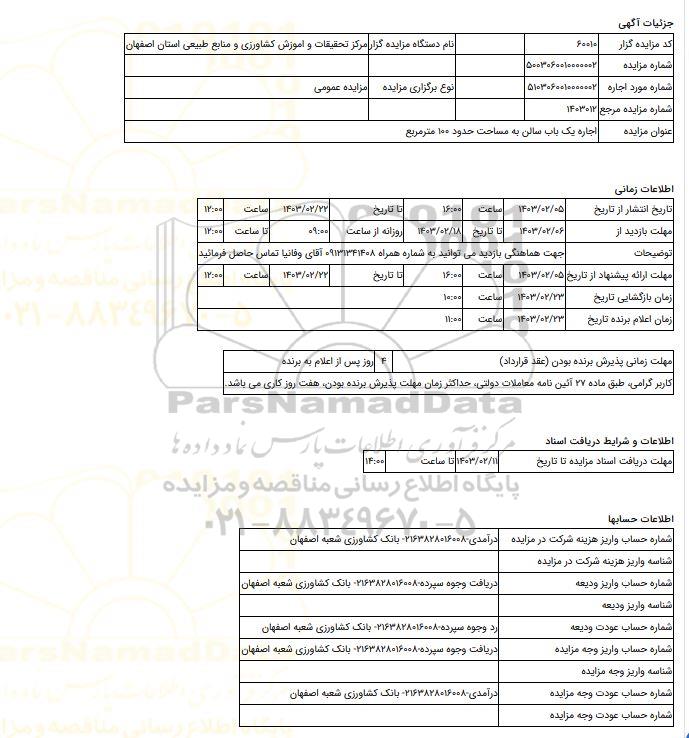 جزئیات آگهی
کد مزایده گزار ۶۰۰۱۰ نام دستگاه مزایده گزار مرکز تحقیقات و اموزش کشاورزی و منابع طبیعی استان اصفهان
شماره مزایده ۵۰۰۳۰۶۰۰۱۰۰۰۰۰۰۲
شماره مورد اجاره ۵۱۰۳۰۶۰۰۱۰۰۰۰۰۰۲ نوع برگزاری مزایده مزایده عمومی
شماره مزایده مرجع ۱۴۰۳۰۱۲
عنوان مزایده اجاره یک باب سالن به مساحت حدود ۱۰۰ مترمربع
اطلاعات زمانی
تاریخ انتشار از تاریخ ۱۴۰۳/۰۲/۰۵ ساعت ۱۶:۰۰ تا تاریخ ۱۴۰۳/۰۲/۲۲ ساعت ۱۲:۰۰
مهلت بازدید از ۱۴۰۳/۰۲/۰۶ تا تاریخ ۱۴۰۳/۰۲/۱۸ روزانه از ساعت ۰۹:۰۰ تا ساعت ۱۲:۰۰
توضیحات جهت هماهنگی بازدید می توانید به شماره همراه ۰۹۱۳۱۳۴۱۴۰۸ آقای وفانیا تماس حاصل فرمائید
مهلت ارائه پیشنهاد از تاریخ ۱۴۰۳/۰۲/۰۵ ساعت ۱۶:۰۰ تا تاریخ ۱۴۰۳/۰۲/۲۲ ساعت ۱۲:۰۰
زمان بازگشایی تاریخ ۱۴۰۳/۰۲/۲۳ ساعت ۱۰:۰۰
زمان اعلام برنده تاریخ ۱۴۰۳/۰۲/۲۳ ساعت ۱۱:۰۰
مهلت زمانی پذیرش برنده بودن (عقد قرارداد) ۴ روز پس از اعلام به برنده
کاربر گرامی، طبق ماده ۲۷ آئین نامه معاملات دولتی، حداکثر زمان مهلت پذیرش برنده بودن، هفت روز کاری می باشد.
ParsNamadData
مرکز فرآوری اطلاعات پارس نماد داده ها
اطلاعات و شرایط دریافت اسناد
مهلت دریافت اسناد مزایده تا تاریخ ۱۴۰۳/۰۲/۱۱ تا ساعت ۱۴:۰۰
پایگاه اطلاع رسانی مناقصه و مزایده
۰۲۱-۸۸۳۴۹۶۷۰-۵
اطلاعات حسابها
شماره حساب واریز هزینه شرکت در مزایده درآمدی-۲۱۶۳۸۲۸۰۱۶۰۰۸- بانک کشاورزی شعبه اصفهان
شناسه واریز هزینه شرکت در مزایده
شماره حساب واریز ودیعه دریافت وجوه سپرده-۲۱۶۳۸۲۸۰۱۶۰۰۸- بانک کشاورزی شعبه اصفهان
شناسه واریز ودیعه
شماره حساب عودت ودیعه رد وجوه سپرده-۲۱۶۳۸۲۸۰۱۶۰۰۸- بانک کشاورزی شعبه اصفهان
شماره حساب واریز وجه مزایده دریافت وجوه سپرده-۲۱۶۳۸۲۸۰۱۶۰۰۸- بانک کشاورزی شعبه اصفهان
شناسه واریز وجه مزایده
شماره حساب عودت وجه مزایده درآمدی-۲۱۶۳۸۲۸۰۱۶۰۰۸- بانک کشاورزی شعبه اصفهان
شماره حساب عودت وجه مزایده